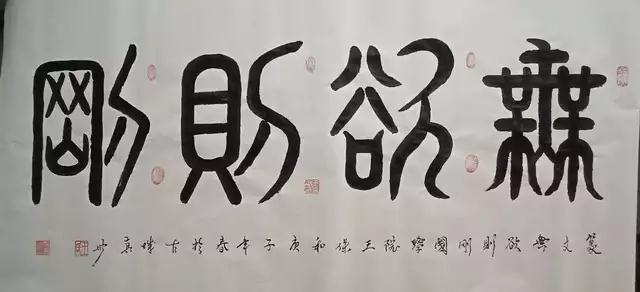 無欲則剛
篆文無欲則剛國學院王保和庚子年春於古城